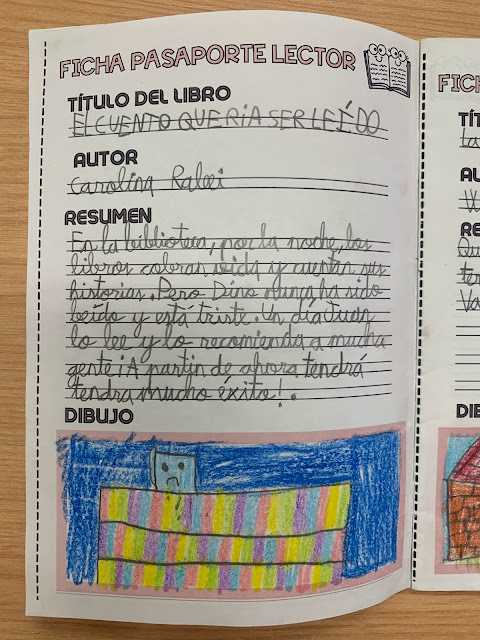 FICHA PASAPORTE LECTOR
TÍTULO DEL LIBRO
EL CUENTO QUERIA SER LEÍDO
AUTOR
Carolina Ralei
RESUMEN
En la biblioteca, por la noche, los
libros cobran vida y cuentan sus
historias. Pero Dino nunca ha sido
leído y está triste. Un día Juan
lo lee y lo recomienda a mucha
gente ¡A partin de ahora tendrá
tendra mucho éxito!.
DIBUJO
FICH
TÍT
La
AU
RE
Qu
ter
Va
DIB